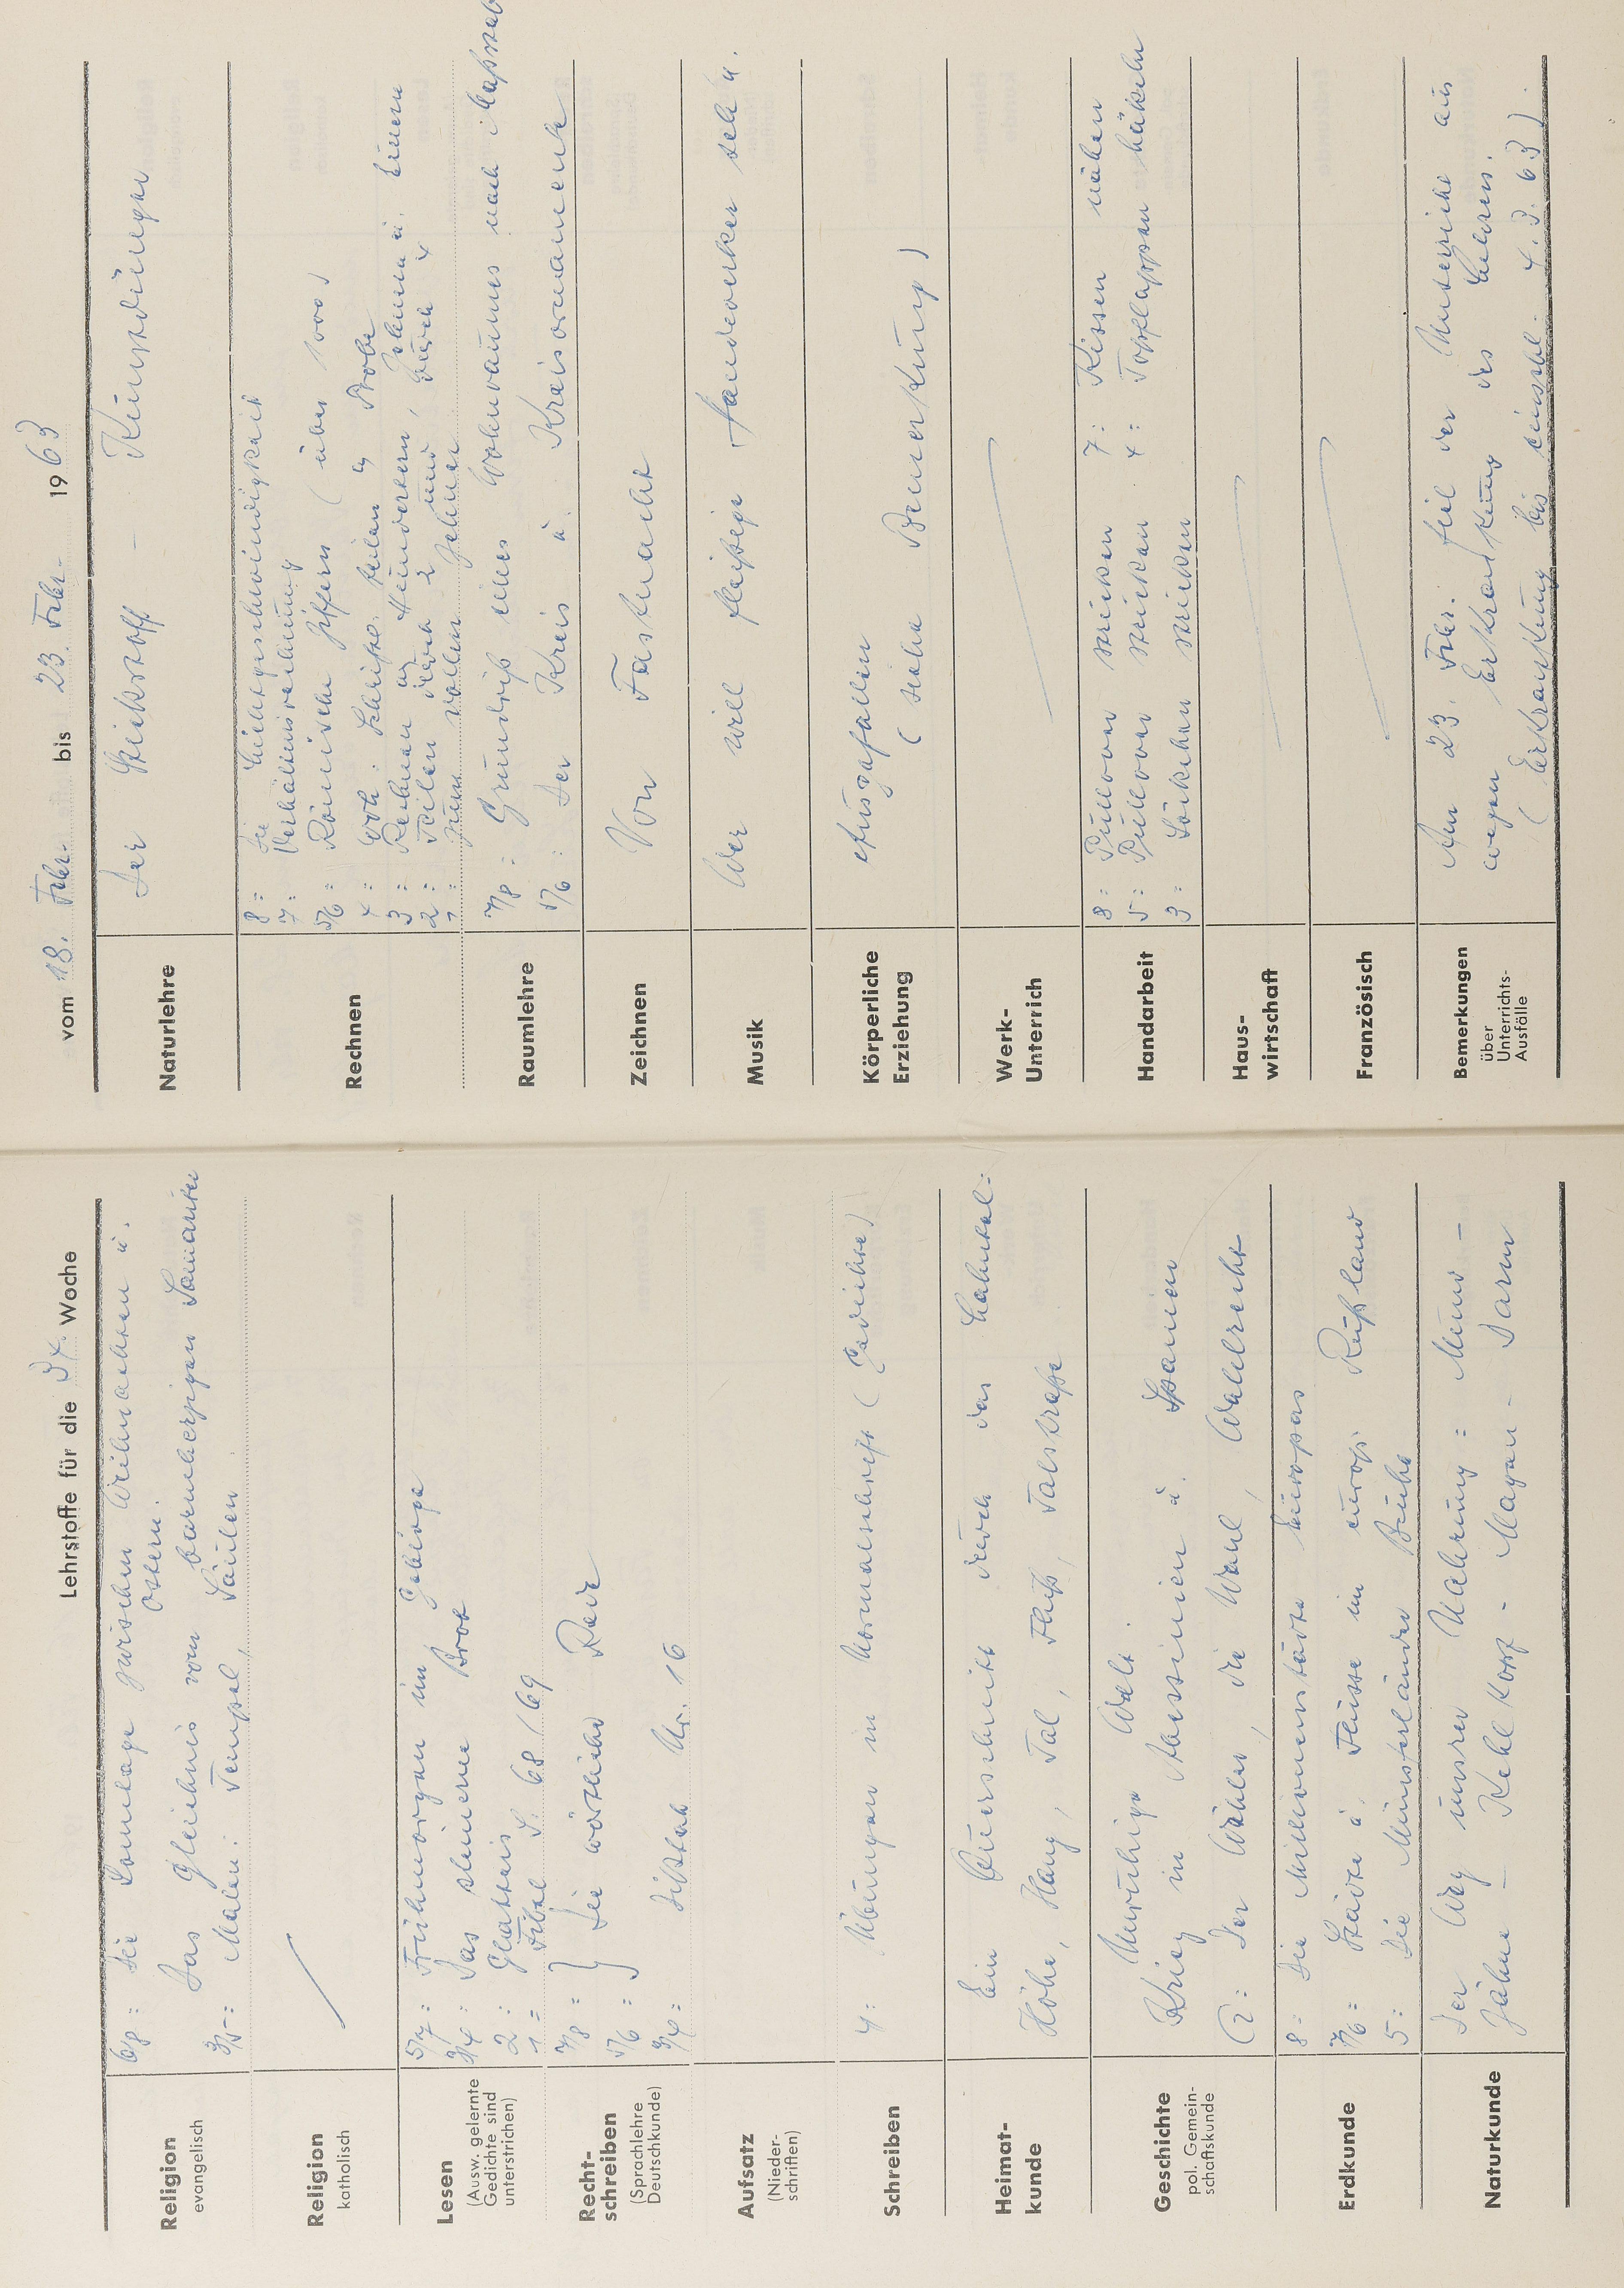 Lehrstoffe für die 34. Woche
Religion
evangelisch
6/8: Die Sonntage zwischen Weihnachten u.
Ostern.
3/5: Das Gleichnis vom barmherzigen Samariter
Malen: Tempel, Säulen
Religion
katholisch
Lesen
(Ausw. gelernte
Gedichte sind
unterstrichen)
5/7: Frühmorgen im Gebirge
3/4: Das steinerne Brot
2: Glatteis
1: Fibel S. 68/69
Recht-
schreiben
(Sprachlehre
Deutschkunde)
7/8: } Die wörtliche Rede
5/6:
3/4: Diktat Nr. 16
Aufsatz
(Nieder-
schriften)
Schreiben
4: Übungen in Normalschrift (Gedichte)
Heimat-
kunde
Ein Querschnitt durch das Lahntal:
Höhe, Hang, Tal, Fluß, Talstraße
Geschichte
pol. Gemein-
schaftskunde
Unruhige Welt.
Krieg in Abessinien u. Spanien
G: Der Wähler, die Wahl, Wahlrecht
Erdkunde
8: Die Millionenstädte Europas
7/6: Städte u. Flüsse im europ. Rußland
5: Die Münsterländer Bucht
Naturkunde
Der Weg unsrer Nahrung: Mund -
Zähne - Kehlkopf - Magen - Darm
vom 18. Febr. bis 23. Febr. 1963
Naturlehre
Der Stickstoff - Kunstdünger
Rechnen
8: Die Lichtgeschwindigkeit
7: Verhältnisrechnung
5/6: Römische Ziffern (über 1000)
4: Wdh. Schriftl. teilen u. Probe
3: Rechnen m. Hunderern, Zehnern u. Einern
2: Teilen durch 2 und durch 4
1: Zum vollen Zehner
Raumlehre
7/8: Grundriß eines Wohnraumes nach Maßstab
5/6: Der Kreis u. Kreisornamente
Zeichnen
Von Fastnacht
Musik
Wer will fleißige Handwerker sehn.
Körperliche
Erziehung
Ausgefallen
(siehe Bemerkung)
Werk-
Unterrich
Handarbeit
8: Pullover stricken 7: Kissen nähen
5: Pullover stricken 4: Topflappen häkeln
3: Söckchen stricken
Haus-
wirtschaft
Französisch
Bemerkungen
über
Unterrichts-
Ausfälle
Am 23. Febr. fiel der Unterricht aus
wegen Erkrankung des Lehrers.
(Erkrankung bis einschl. 4.3.63).